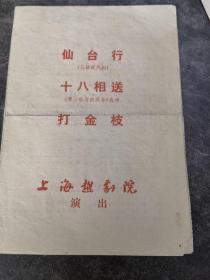 仙台行
十八相送
打金枝
上海越剧院
演出